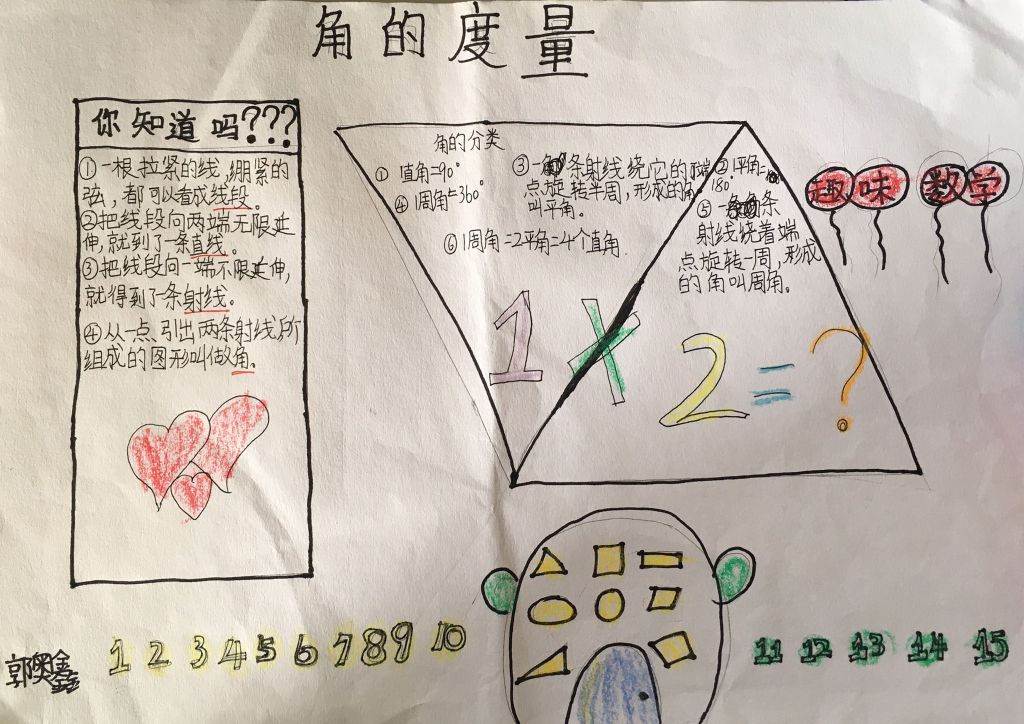 角的度量
你知道吗???
①一根拉紧的线,绷紧的
弦,都可以看成线段。
②把线段向两端无限延
伸,就到了一条直线。
③把线段向一端不限延伸,
就得到了条射线。
④从一点引出两条射线所
组成的图形叫做角。
角的分类
① 直角=90°
④1周角=360°
③一条射线绕它的端
点旋转半周,形成的角
叫平角。
⑥1周角=2平角=4个直角
②1平角=
180°
⑤一条
射线绕着端
点旋转一周,形成
的角叫周角。
趣味数学
1×2=?
1 2 3 4 5 6 7 8 9 10
11 12 13 14 15